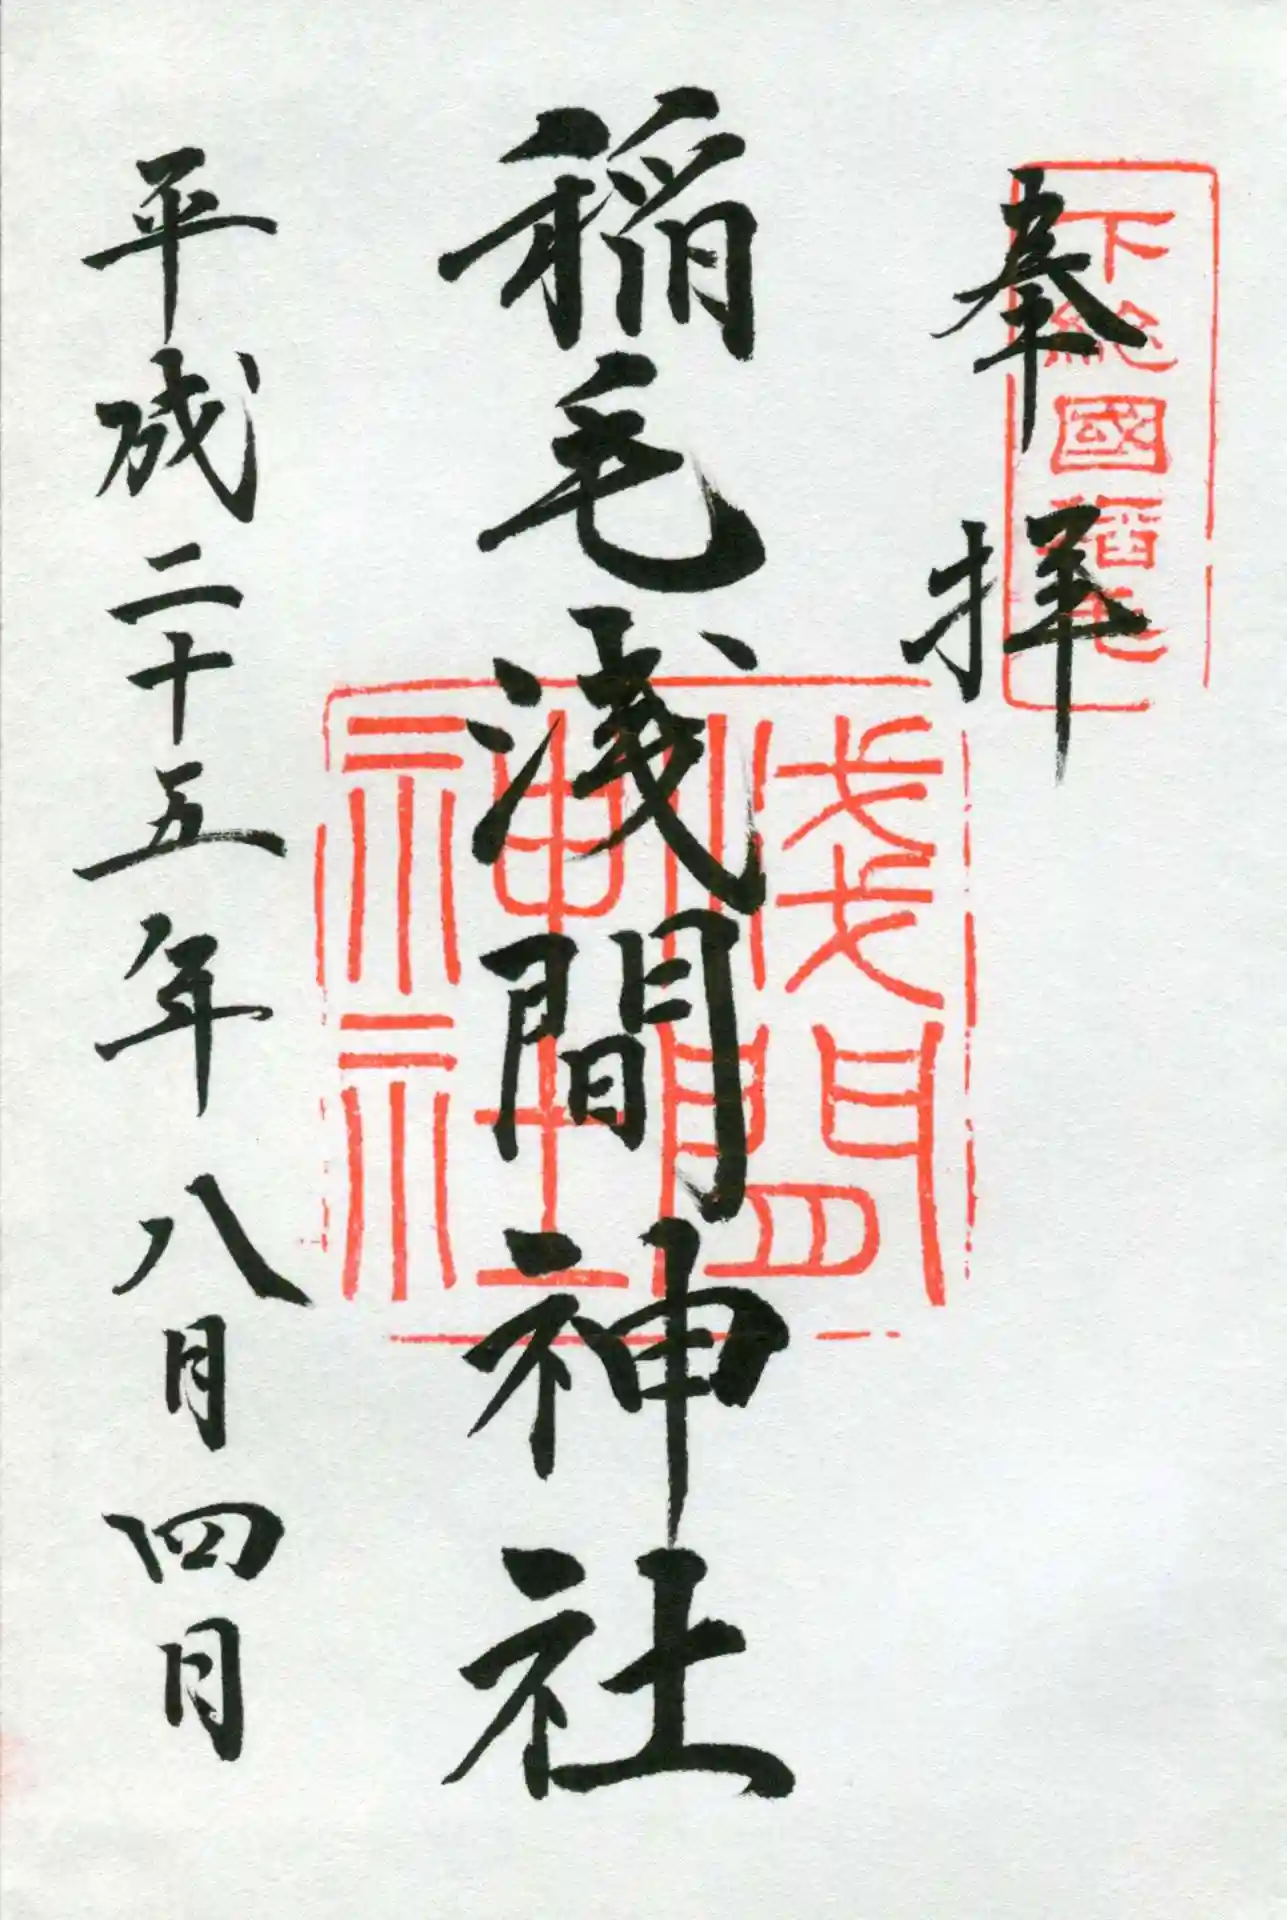 下総國稲毛
奉拝
稲毛浅間神社
淺間神社
平成二十五年八月四日